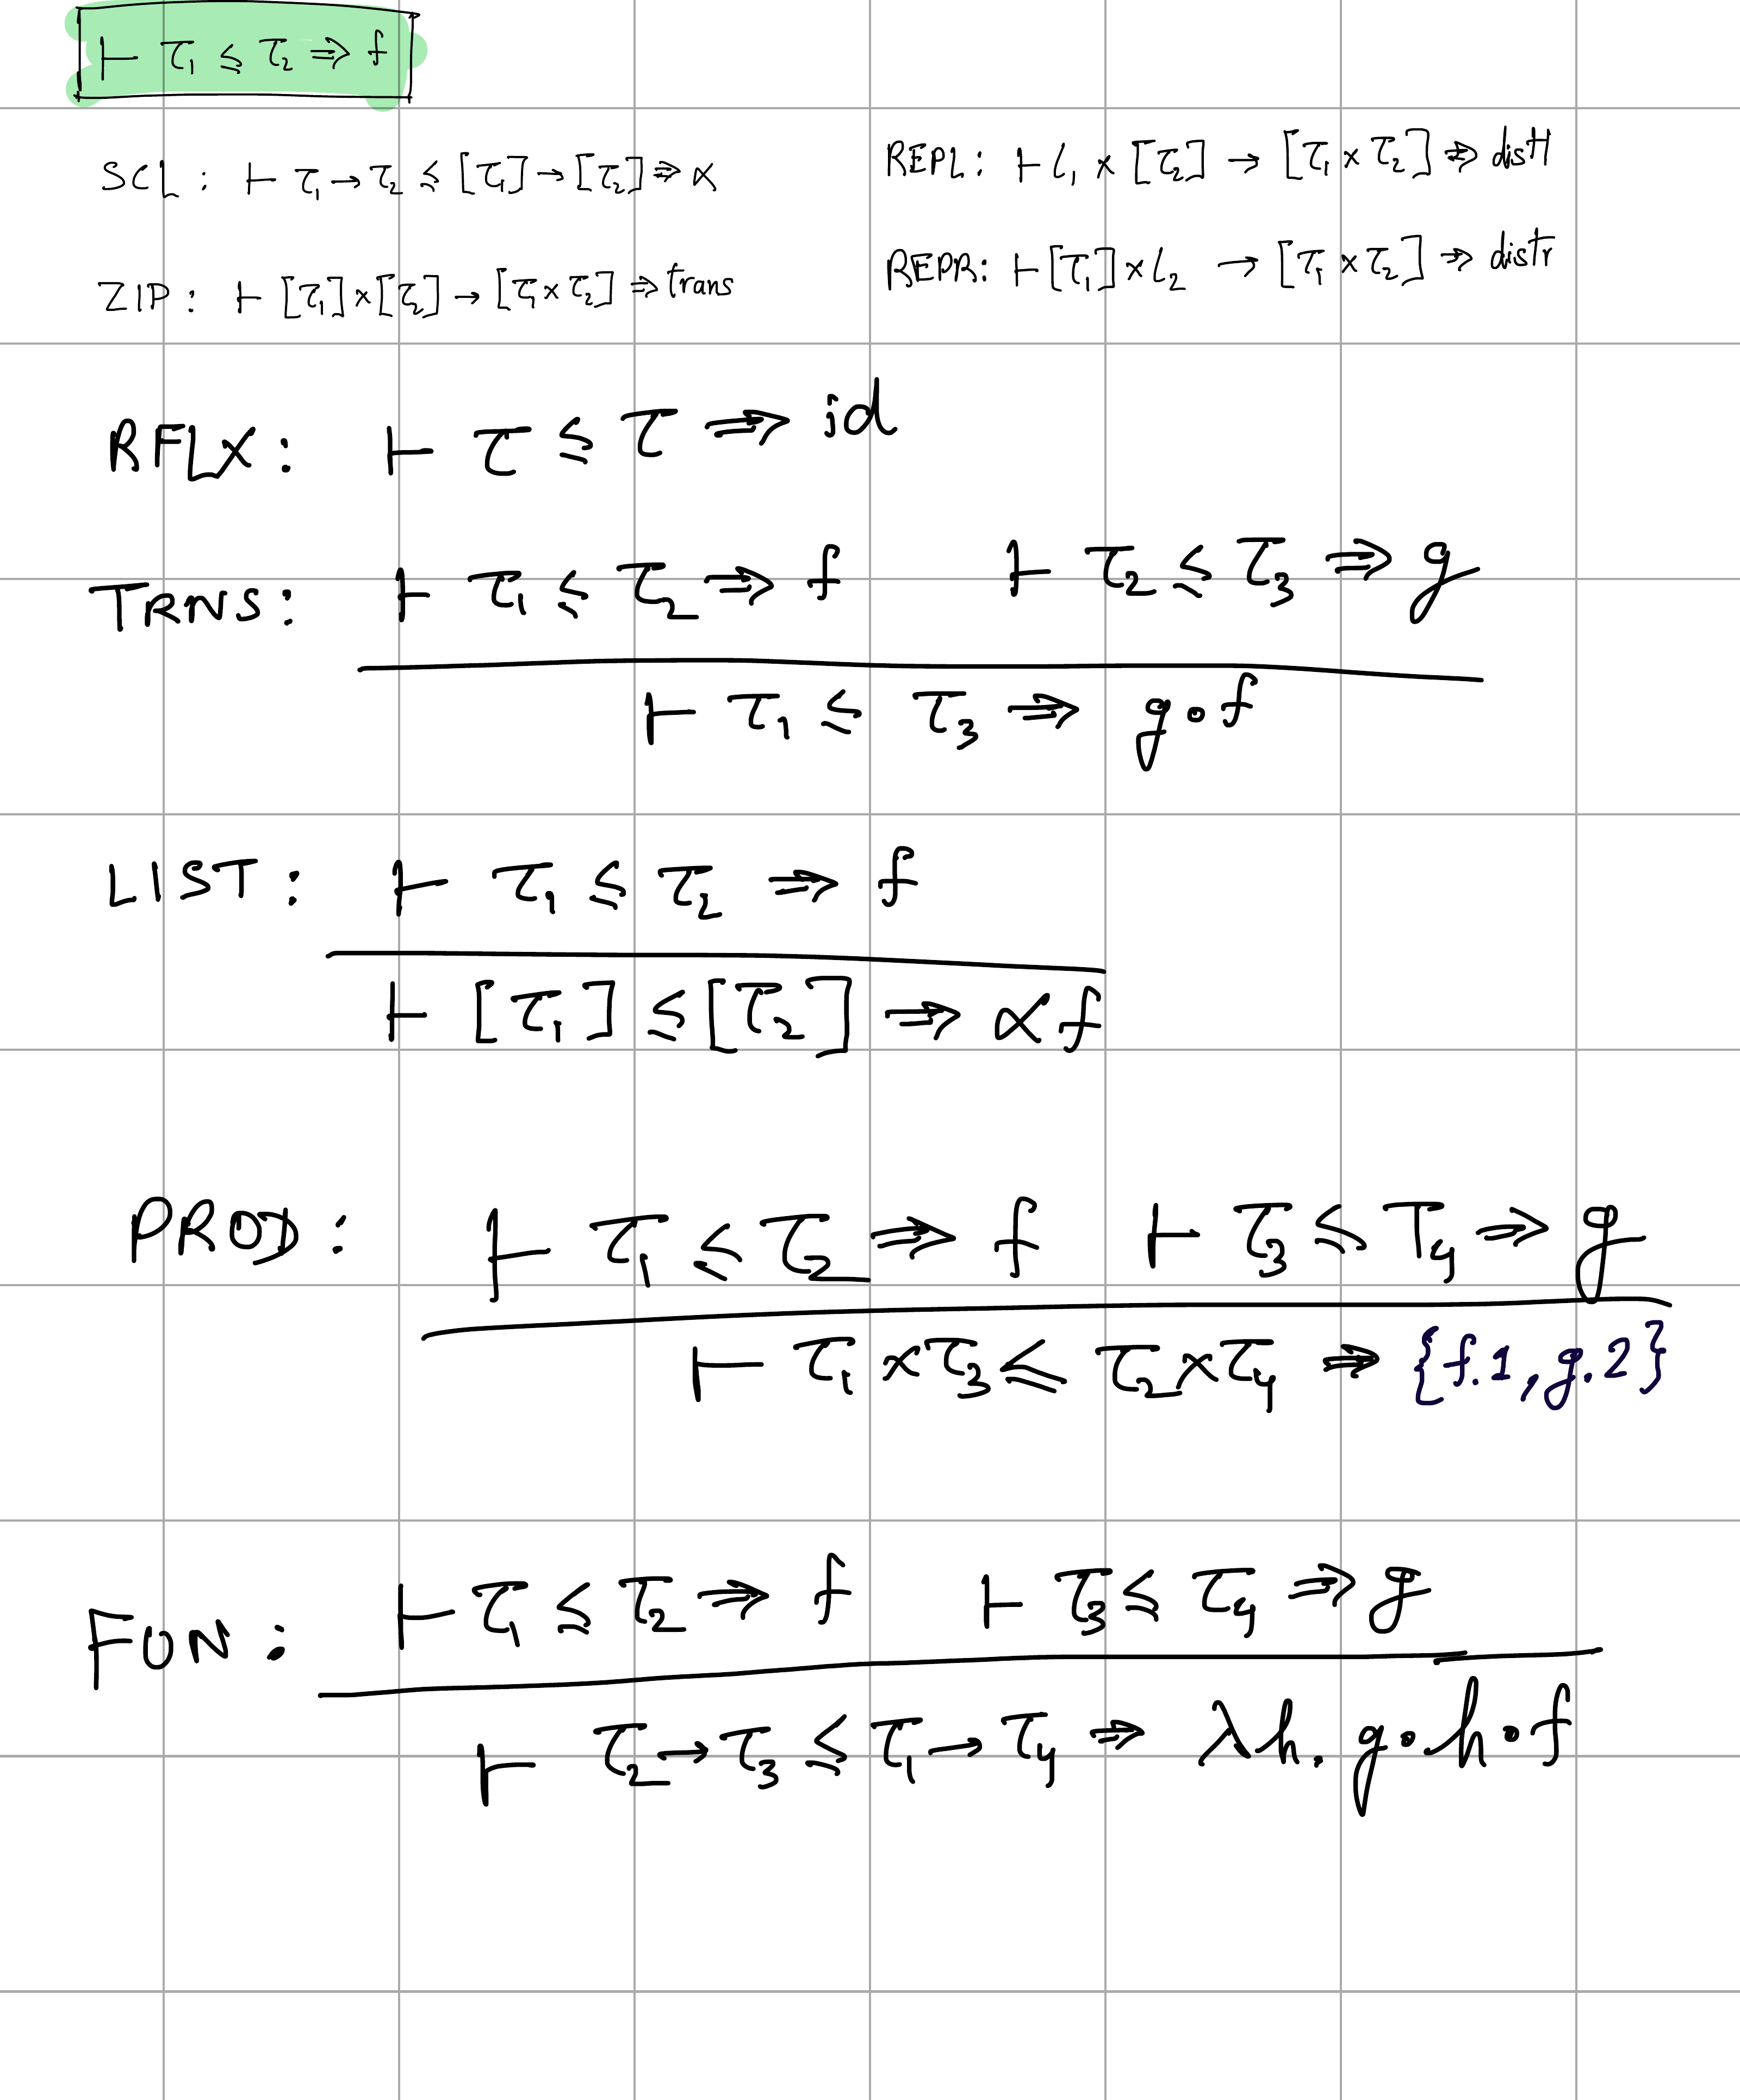 ⊢ τ₁ ≤ τ₂ ⇒ f
SCL: ⊢ τ₁ → τ₂ ≤ [τ₁] → [τ₂] ⇒ α
REPL: ⊢ ι₁ × [τ₂] → [τ₁ × τ₂] ⇒ distl
ZIP: ⊢ [τ₁] × [τ₂] → [τ₁ × τ₂] ⇒ trans
REPR: ⊢ [τ₁] × ι₂ → [τ₁ × τ₂] ⇒ distr
RFLX: ⊢ τ ≤ τ ⇒ id
TRNS: ⊢ τ₁ ≤ τ₂ ⇒ f ⊢ τ₂ ≤ τ₃ ⇒ g
⊢ τ₁ ≤ τ₃ ⇒ g∘f
LIST: ⊢ τ₁ ≤ τ₂ ⇒ f
⊢ [τ₁] ≤ [τ₂] ⇒ αf
PROD: ⊢ τ₁ ≤ τ₂ ⇒ f ⊢ τ₃ ≤ τ₄ ⇒ g
⊢ τ₁ × τ₃ ≤ τ₂ × τ₄ ⇒ {f.1, g.2}
FUN: ⊢ τ₁ ≤ τ₂ ⇒ f ⊢ τ₃ ≤ τ₄ ⇒ g
⊢ τ₂ → τ₃ ≤ τ₁ → τ₄ ⇒ λh. g∘h∘f